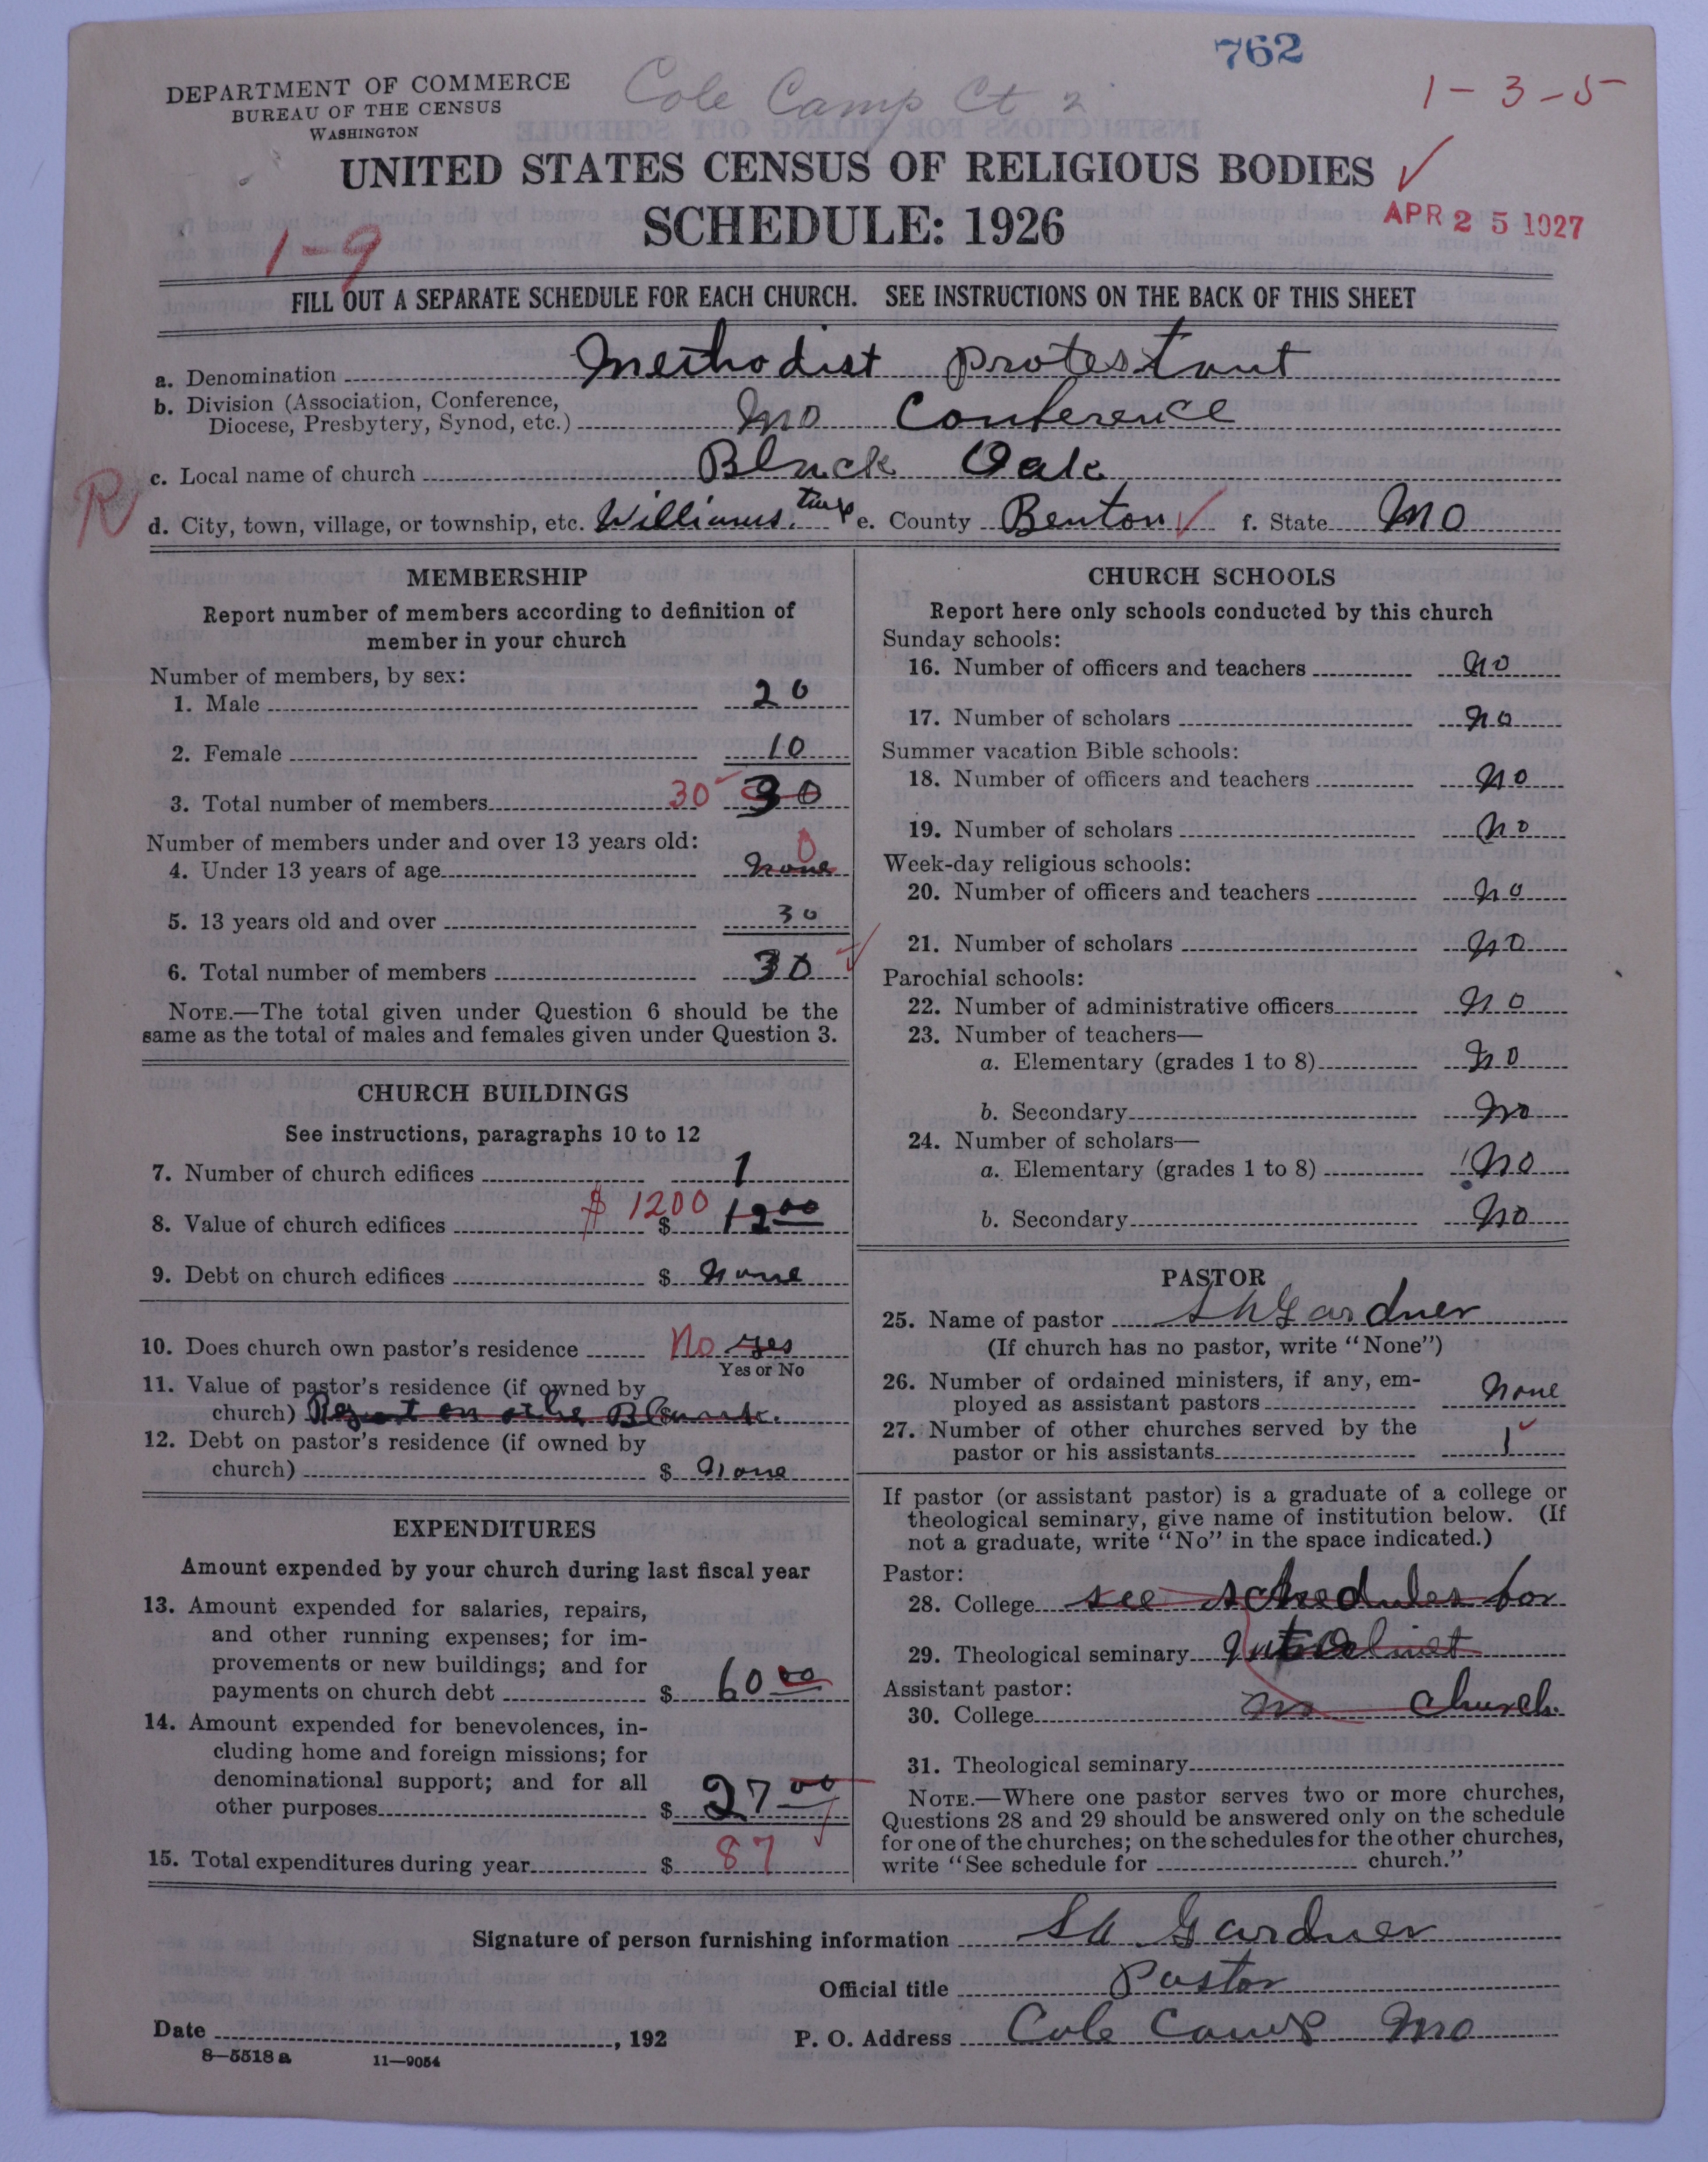 762
Cole Camp Ct 2
1-3-5
DEPARTMENT OF COMMERCE
BUREAU OF THE CENSUS
WASHINGTON
UNITED STATES CENSUS OF RELIGIOUS BODIES
SCHEDULE: 1926
APR 25 1927
1-9
FILL OUT A SEPARATE SCHEDULE FOR EACH CHURCH. SEE INSTRUCTIONS ON THE BACK OF THIS SHEET
a. Denomination Methodist Protestant
b. Division (Association, Conference,
Diocese, Presbytery, Synod, etc.) Mo Conference
c. Local name of church Black Oak
R
d. City, town, village, or township, etc. Williams. twp e. County Benton f. State Mo
MEMBERSHIP
Report number of members according to definition of
member in your church
Number of members, by sex:
1. Male 20
2. Female 10
3. Total number of members 30 30
Number of members under and over 13 years old:
4. Under 13 years of age none 0
5. 13 years old and over 30
6. Total number of members 30
NOTE.—The total given under Question 6 should be the
same as the total of males and females given under Question 3.
CHURCH BUILDINGS
See instructions, paragraphs 10 to 12
7. Number of church edifices 1
8. Value of church edifices $1200 $ 1200
9. Debt on church edifices $ none
10. Does church own pastor's residence No yes
Yes or No
11. Value of pastor's residence (if owned by
church) Report on other Blank.
12. Debt on pastor's residence (if owned by
church) $ None
EXPENDITURES
Amount expended by your church during last fiscal year
13. Amount expended for salaries, repairs,
and other running expenses; for im-
provements or new buildings; and for
payments on church debt $ 60 00
14. Amount expended for benevolences, in-
cluding home and foreign missions; for
denominational support; and for all
other purposes $ 27 00
15. Total expenditures during year $ 87
CHURCH SCHOOLS
Report here only schools conducted by this church
Sunday schools:
16. Number of officers and teachers no
17. Number of scholars no
Summer vacation Bible schools:
18. Number of officers and teachers no
19. Number of scholars no
Week-day religious schools:
20. Number of officers and teachers no
21. Number of scholars no
Parochial schools:
22. Number of administrative officers no
23. Number of teachers—
a. Elementary (grades 1 to 8) no
b. Secondary no
24. Number of scholars—
a. Elementary (grades 1 to 8) no
b. Secondary no
PASTOR
25. Name of pastor Gardner
(If church has no pastor, write "None")
26. Number of ordained ministers, if any, em-
ployed as assistant pastors none
27. Number of other churches served by the
pastor or his assistants 1
If pastor (or assistant pastor) is a graduate of a college or
theological seminary, give name of institution below. (If
not a graduate, write "No" in the space indicated.)
Pastor:
28. College see schedules for
29. Theological seminary
Assistant pastor:
30. College church.
31. Theological seminary
NOTE.—Where one pastor serves two or more churches,
Questions 28 and 29 should be answered only on the schedule
for one of the churches; on the schedules for the other churches,
write "See schedule for church."
Signature of person furnishing information Gardner
Official title Pastor
Date , 192 P. O. Address Cole Camp Mo
8—5518 a 11—9054